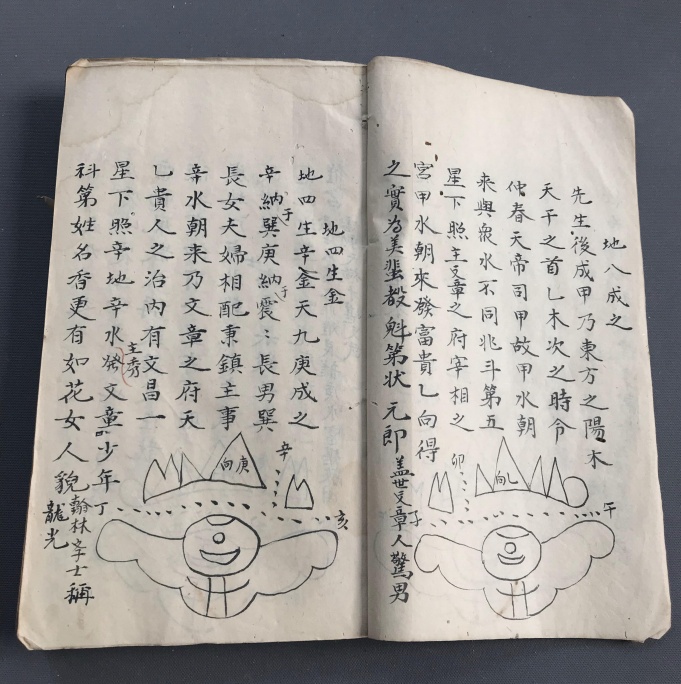 地八成之
先生後成甲乃東方之陽木
天干之首乙木次之時令
仲春天帝司甲故甲水朝
来與眾水不同兆斗第五
星下照主文章之府宰相之
宮甲水朝來發富貴乙向得
之實為美蜚殿魁第狀元郎蓋世文章人驚男
卯
乙向
午
子
地四生金
地四生辛金天九庚成之
辛納于巽庚納于震〻長男巽
長女夫婦相配秉鎮主事
辛水朝来乃文章之府天
乙貴人之治內有文昌一
星下照辛地辛水發主秀文章少年
科第姓名香更有如花女人貌翰林学士稱
龍光
辛
庚向
亥
丁